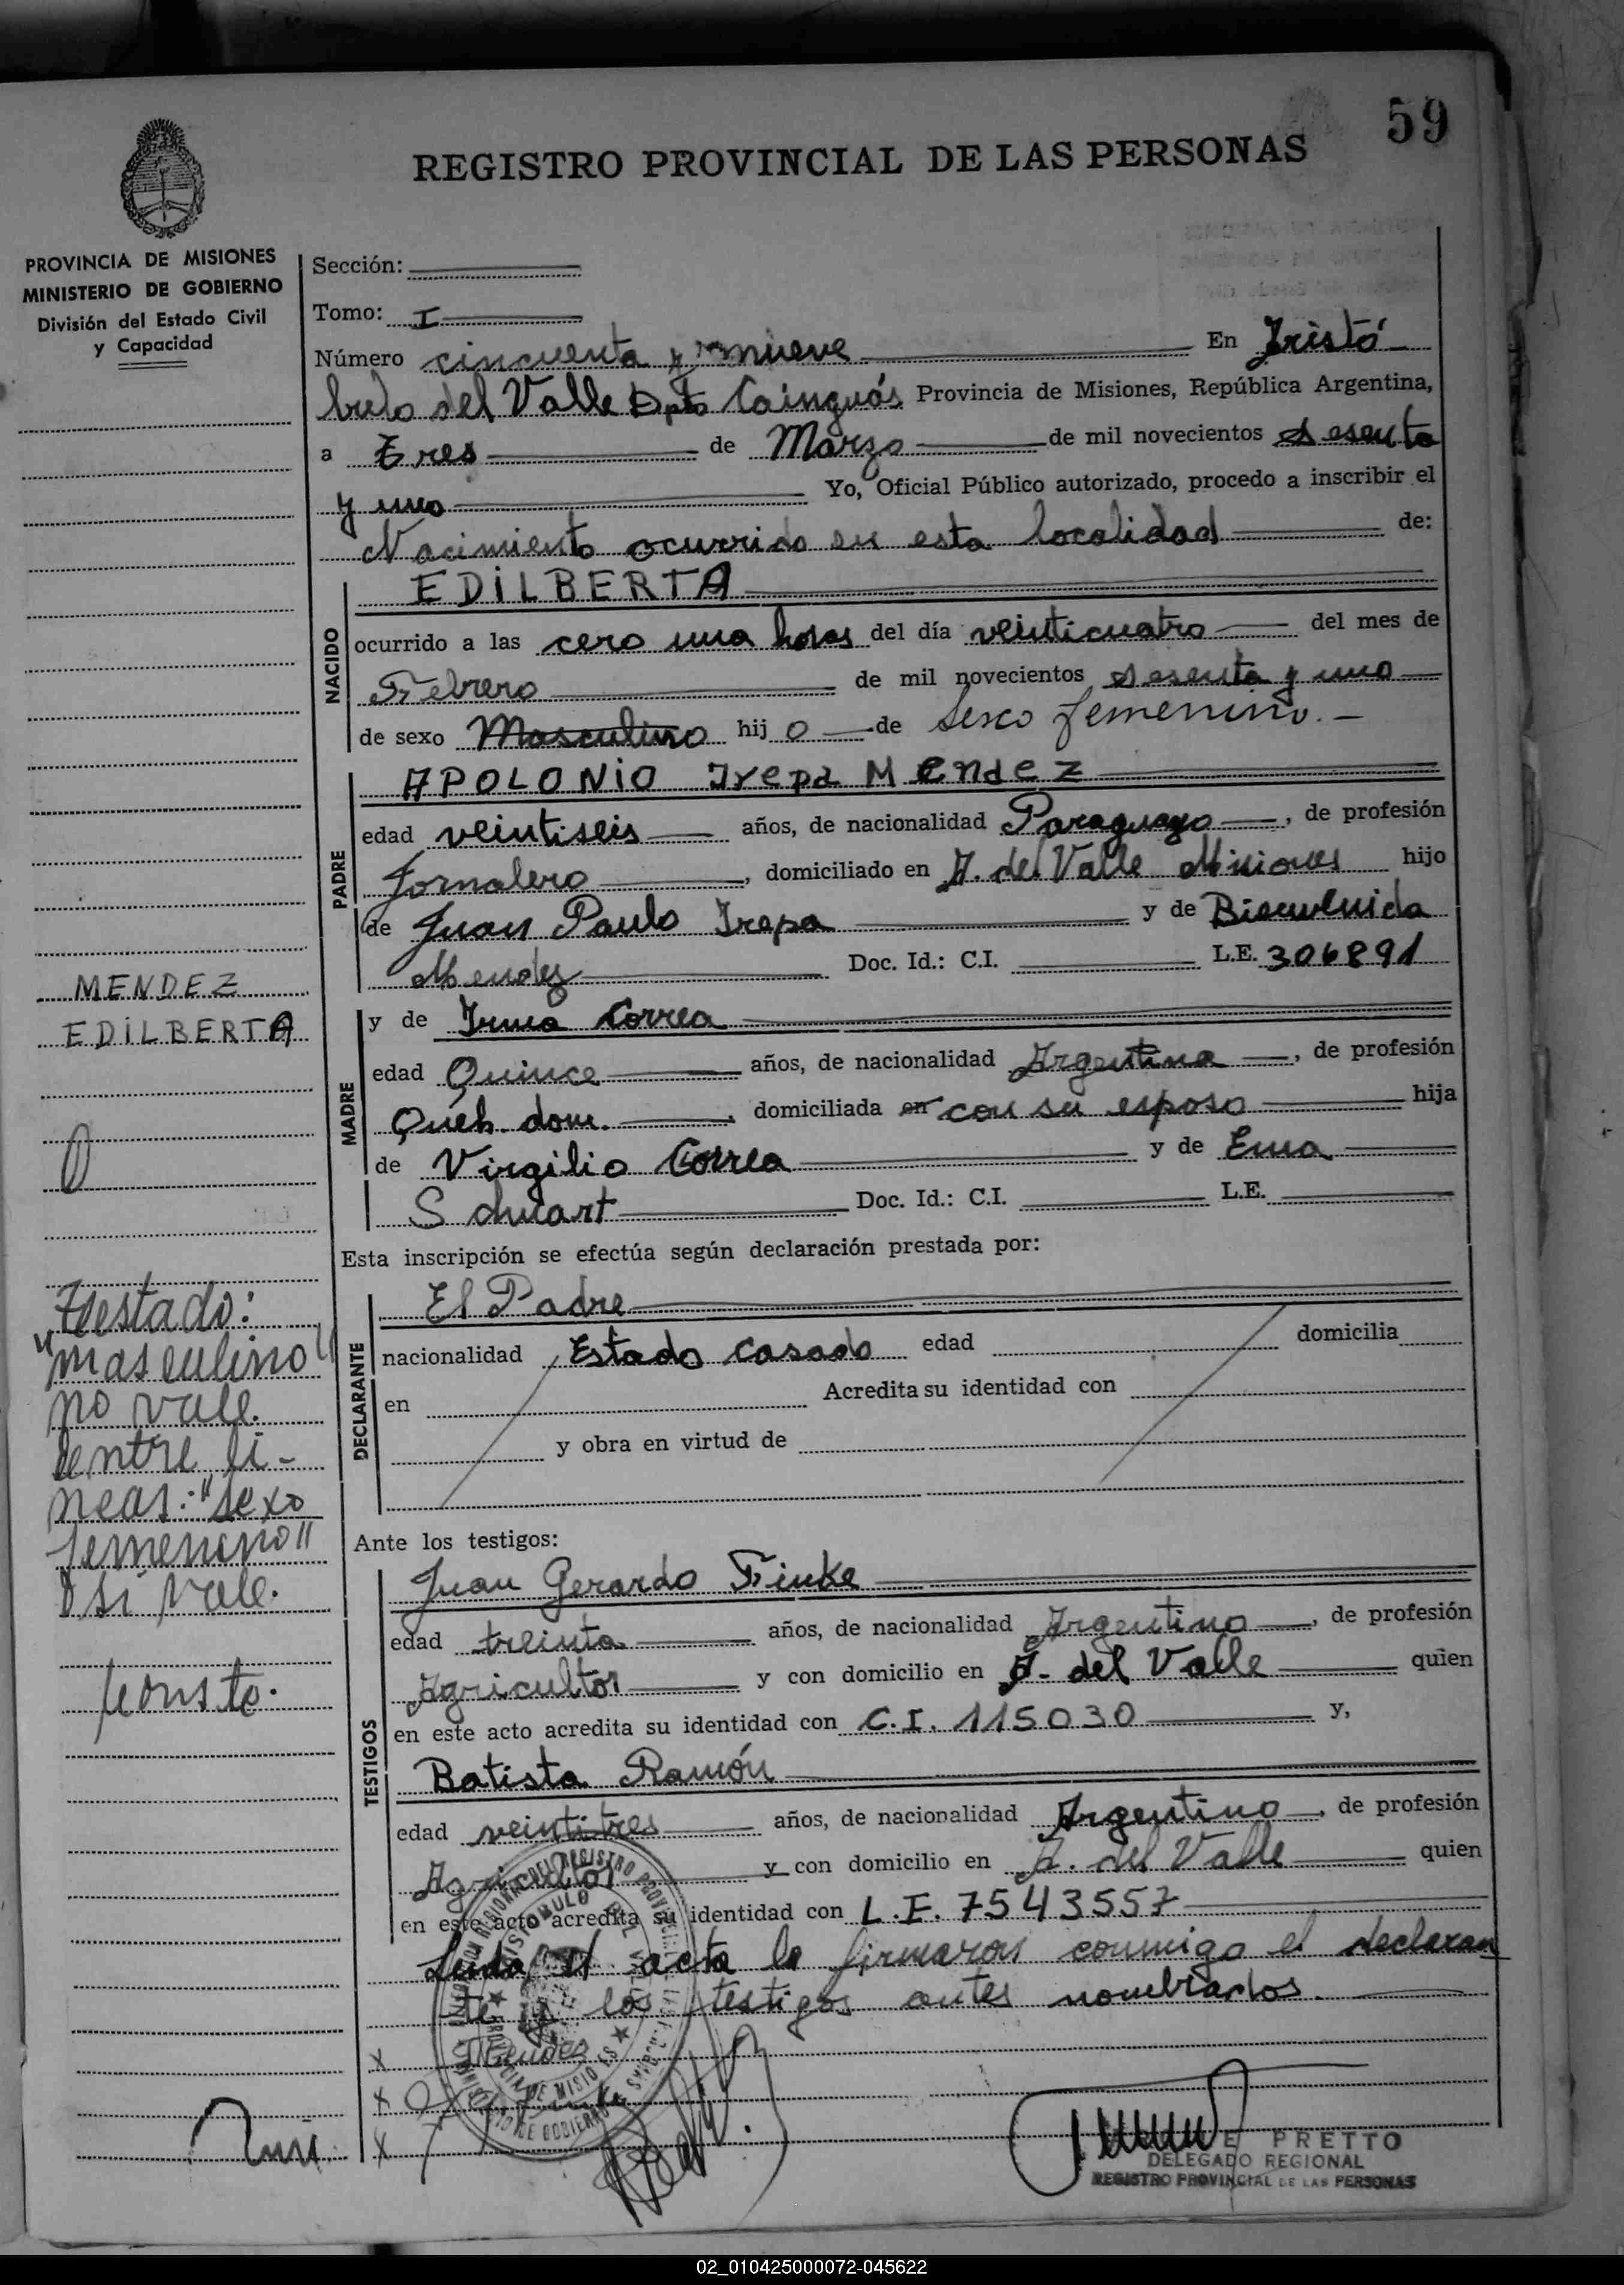 59
REGISTRO PROVINCIAL DE LAS PERSONAS
PROVINCIA DE MISIONES
MINISTERIO DE GOBIERNO
División del Estado Civil
y Capacidad
Sección:
Tomo: I
Número cincuenta y nueve En Aristó-
bulo del Valle Dpto Cainguás Provincia de Misiones, República Argentina,
a tres de Marzo de mil novecientos sesenta
y uno Yo, Oficial Público autorizado, procedo a inscribir el
Nacimiento ocurrido en esta localidad de:
NACIDO
EDILBERTA
ocurrido a las cero una horas del día veinticuatro del mes de
Febrero de mil novecientos sesenta y uno
de sexo Masculino hij o de Sexo femenino.-
PADRE
APOLONIO Irepa Mendez
edad veintiseis años, de nacionalidad Paraguayo, de profesión
Jornalero, domiciliado en A. del Valle Misiones hijo
de Juan Paulo Irepa y de Bienvenida
Mendez Doc. Id.: C.I. L.E. 306891
MENDEZ
EDILBERTA
MADRE
y de Irma Correa
edad Quince años, de nacionalidad Argentina, de profesión
Queh. dom., domiciliada en con su esposo hija
de Virgilio Correa y de Ema
Schucart Doc. Id.: C.I. L.E.
Esta inscripción se efectúa según declaración prestada por:
DECLARANTE
El Padre
nacionalidad Estado casado edad domicilia
en Acredita su identidad con
y obra en virtud de
Testado:
"masculino"
no vale.
entre lí-
neas: "sexo
femenino"
si vale.
Conste.
Ante los testigos:
TESTIGOS
Juan Gerardo Finke
edad treinta años, de nacionalidad Argentino, de profesión
Agricultor y con domicilio en A. del Valle quien
en este acto acredita su identidad con C.I. 115030 y,
Batista Ramón
edad veintitres años, de nacionalidad Argentino, de profesión
Agricultor y con domicilio en A. del Valle quien
en este acto acredita su identidad con L.E. 7543557
Leida el acta la firmaron conmigo el declaran
te y los testigos antes nombrados.
x Mendez
x
x
E PRETTO
DELEGADO REGIONAL
REGISTRO PROVINCIAL DE LAS PERSONAS
02_010425000072-045622